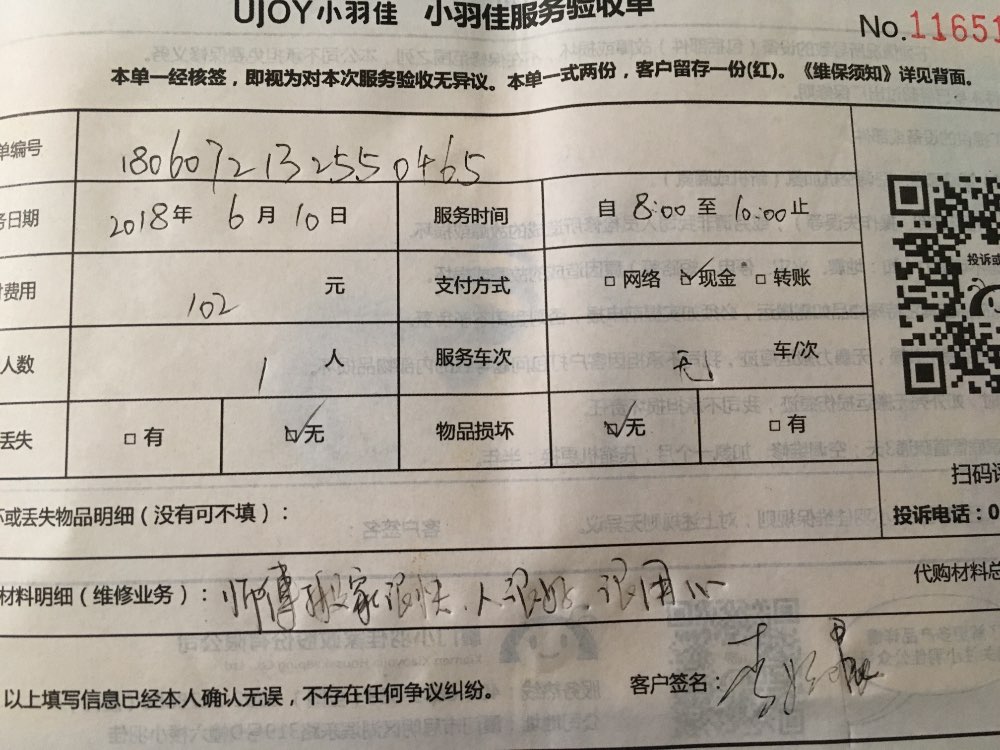 UJOY小羽佳 小羽佳服务验收单
No.11651
本单一经核签，即视为对本次服务验收无异议。本单一式两份，客户留存一份(红)。《维保须知》详见背面。
单编号 1806072132550465
务日期 2018年 6月 10日 服务时间 自 8:00 至 10:00 止
费用 102 元 支付方式 □ 网络 ☑ 现金 □ 转账
人数 1 人 服务车次 无 车/次
丢失 □ 有 ☑ 无 物品损坏 ☑ 无 □ 有
投诉或
扫码
坏或丢失物品明细（没有可不填）：
投诉电话：0
材料明细（维修业务）：师傅搬家很快、人很好、很用心
代购材料总
以上填写信息已经本人确认无误，不存在任何争议纠纷。
客户签名：